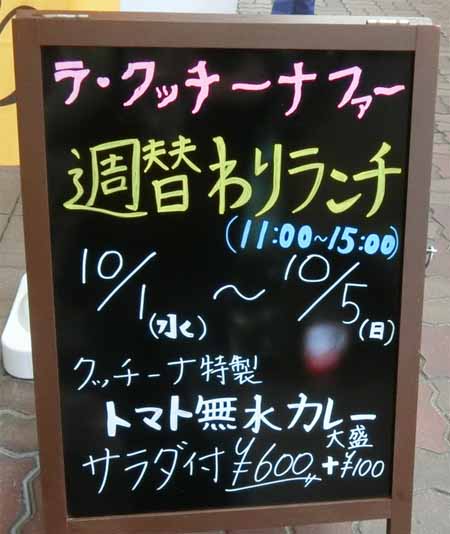 ラ・クッチーナ ファー
週替わりランチ
(11:00~15:00)
10/1(水)~10/5(日)
クッチーナ特製
トマト無水カレー
サラダ付 ¥600 大盛+¥100